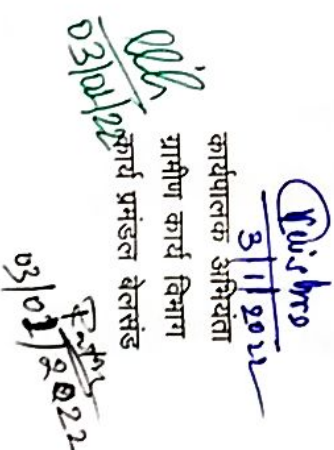 3|1|2022
कार्यपालक अभियंता
ग्रामीण कार्य विभाग
कार्य प्रमंडल बेलसंड
03/01/22
03/01/2022